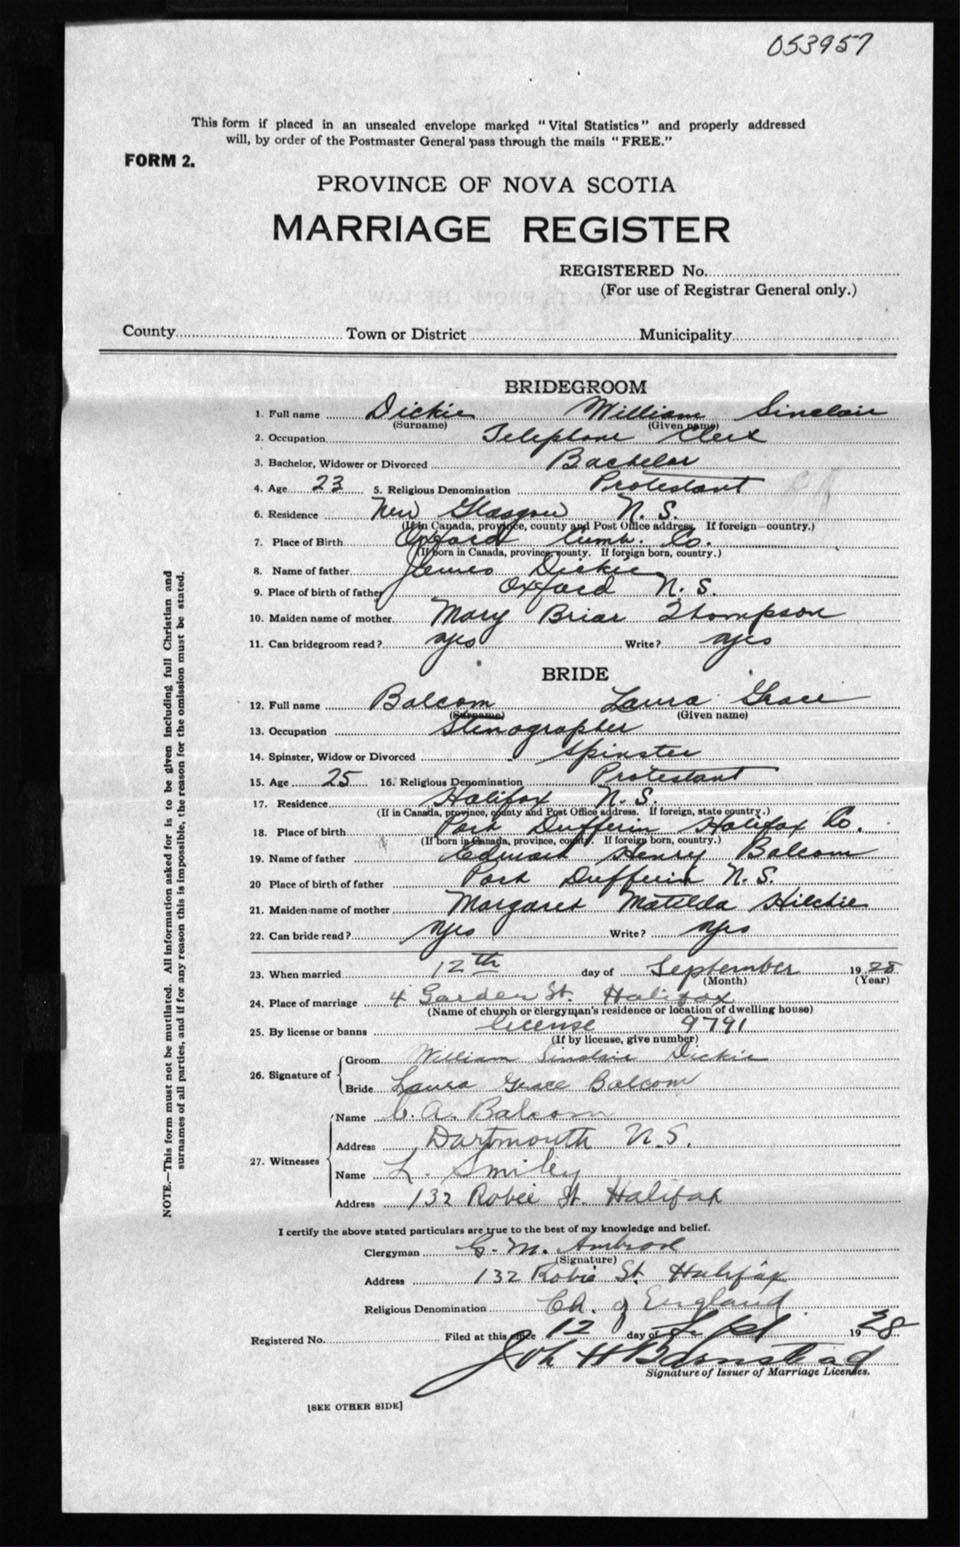 053957
This form if placed in an unsealed envelope marked "Vital Statistics" and properly addressed
will, by order of the Postmaster General pass through the mails "FREE."
FORM 2.
PROVINCE OF NOVA SCOTIA
MARRIAGE REGISTER
REGISTERED No.
(For use of Registrar General only.)
County Town or District Municipality
BRIDEGROOM
1. Full name Dickie William Sinclair
(Surname) (Given name)
2. Occupation Telephone Clerk
3. Bachelor, Widower or Divorced Bachelor
4. Age 23 5. Religious Denomination Protestant
6. Residence New Glasgow N. S.
(If in Canada, province, county and Post Office address. If foreign—country.)
7. Place of Birth Oxford Cumb. Co.
(If born in Canada, province, county. If foreign born, country.)
8. Name of father James Dickie
9. Place of birth of father Oxford N. S.
10. Maiden name of mother Mary Briar Thompson
11. Can bridegroom read? yes Write? yes
BRIDE
12. Full name Balcom Laura Grace
(Surname) (Given name)
13. Occupation Stenographer
14. Spinster, Widow or Divorced Spinster
15. Age 25 16. Religious Denomination Protestant
17. Residence Halifax N. S.
(If in Canada, province, county and Post Office address. If foreign, state country.)
18. Place of birth Port Dufferin Halifax Co.
(If born in Canada, province, county. If foreign born, country.)
19. Name of father Edward Henry Balcom
20 Place of birth of father Port Dufferin N. S.
21. Maiden name of mother Margaret Matilda Hilchie
22. Can bride read? yes Write? yes
23. When married 12th day of September 1928
(Month) (Year)
24. Place of marriage 4 Garden St. Halifax
(Name of church or clergyman's residence or location of dwelling house)
25. By license or banns license 9791
(If by license, give number)
26. Signature of
Groom William Sinclair Dickie
Bride Laura Grace Balcom
27. Witnesses
Name C. A. Balcom
Address Dartmouth N. S.
Name L. Smiley
Address 132 Robie St. Halifax
I certify the above stated particulars are true to the best of my knowledge and belief.
Clergyman G. M. Ambrose
(Signature)
Address 132 Robie St. Halifax
Religious Denomination Ch. of England
Registered No. Filed at this office 12 day of Sept 1928
Signature of Issuer of Marriage Licenses.
[SEE OTHER SIDE]
NOTE.—This form must not be mutilated. All information asked for is to be given including full Christian and
surnames of all parties, and if for any reason this is impossible, the reason for the omission must be stated.